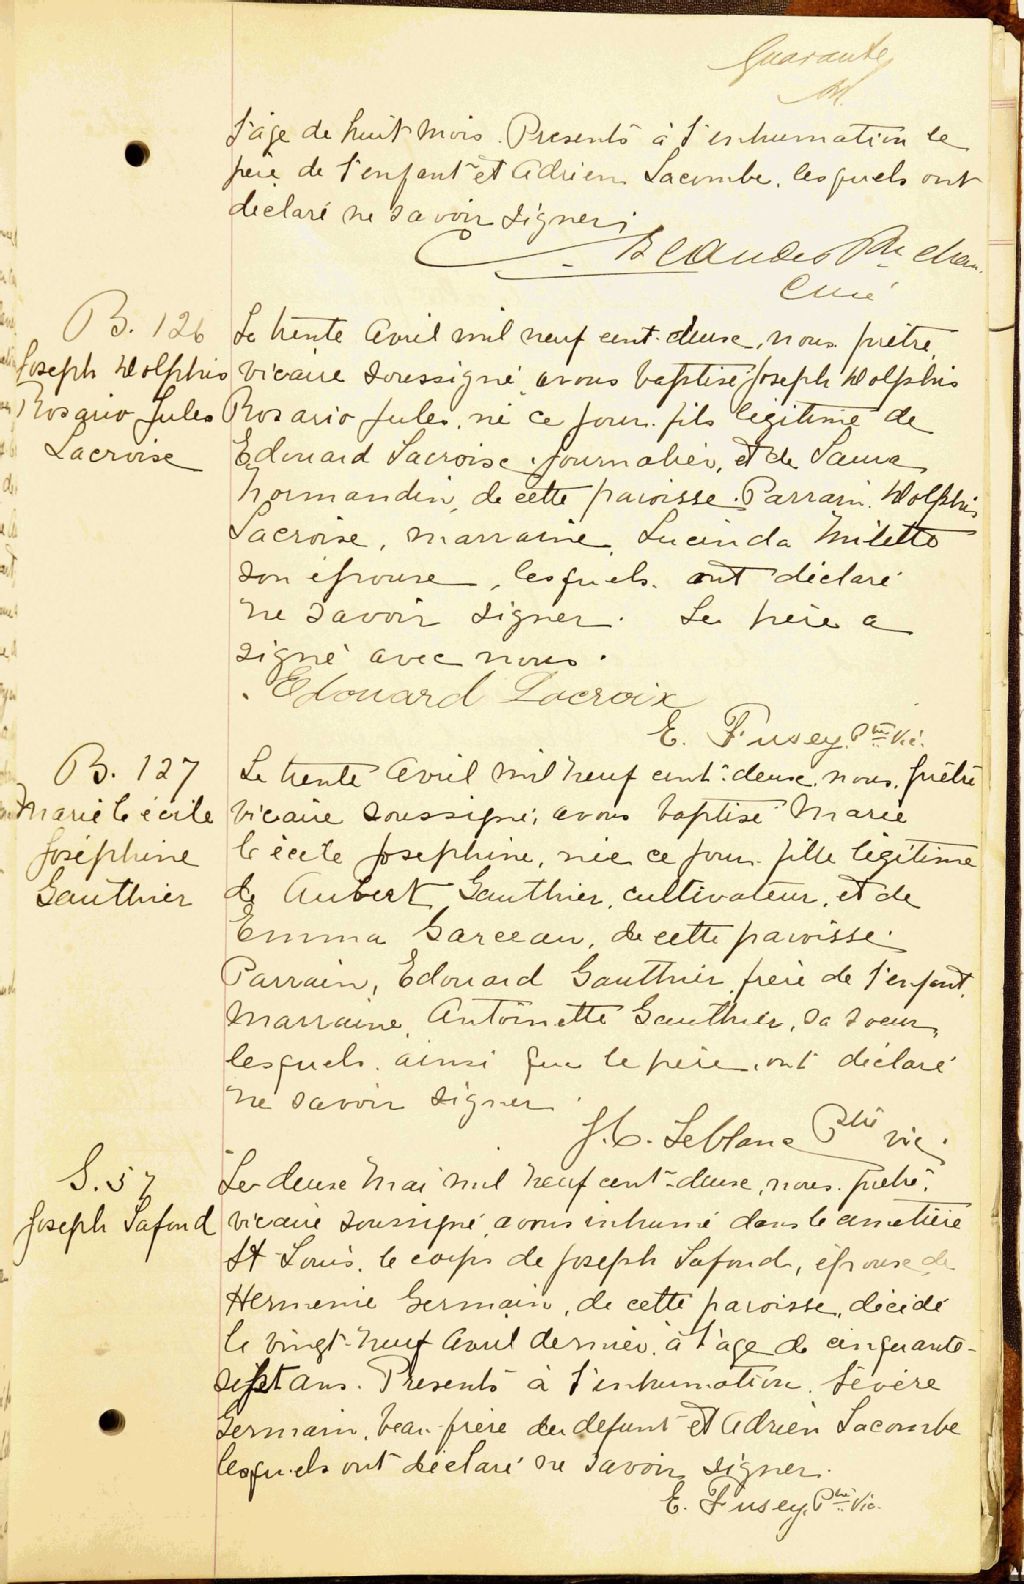 Quarante
l'âge de huit mois. Presents à l'inhumation le
père de l'enfant et Adrien Lacombe, lesquels ont
déclaré ne savoir signer.
Ptre chan.
Curé
B. 126
Joseph Wolphis
Rosario Jules
Lacroise
Le trente Avril mil neuf cent-deuse, nous prêtre
vicaire soussigné avons baptisé Joseph Wolphis
Rosario Jules, né ce jour fils légitime de
Edouard Lacroise, journalier, et de Laura
Normandin, de cette paroisse. Parrain Wolphis
Lacroise, marraine Lucinda Milette
son épouse, lesquels ont déclaré
ne savoir signer. Le père a
signé avec nous.
Edouard Lacroix
E. Fusey Ptre Vic.
B. 127
Marie Cécile
Joséphine
Gauthier
Le trente Avril mil neuf cent-deuse, nous prêtre
vicaire soussigné, avons baptisé Marie
Cécile Josephine, née ce jour fille légitime
de Aubert Gauthier, cultivateur, et de
Emma Garceau, de cette paroisse.
Parrain, Edouard Gauthier frère de l'enfant,
Marraine Antoinette Gauthier, sa soeur,
lesquels ainsi que le père, ont déclaré
ne savoir signer.
J. C. Leblanc Ptre vic.
S. 57
Joseph Lafond
Le deuse Mai mil neuf cent-deuse, nous prêtre,
vicaire soussigné avons inhumé dans le cimetière
St Louis, le corps de Joseph Lafond, épouse de
Hermenie Germain, de cette paroisse, décédé
le vingt-neuf Avril dernier, à l'âge de cinquante-
sept ans. Presents à l'inhumation Sévère
Germain, beau-frère du defunt et Adrien Lacombe
lesquels ont déclaré ne savoir signer.
E. Fusey, Ptre Vic.